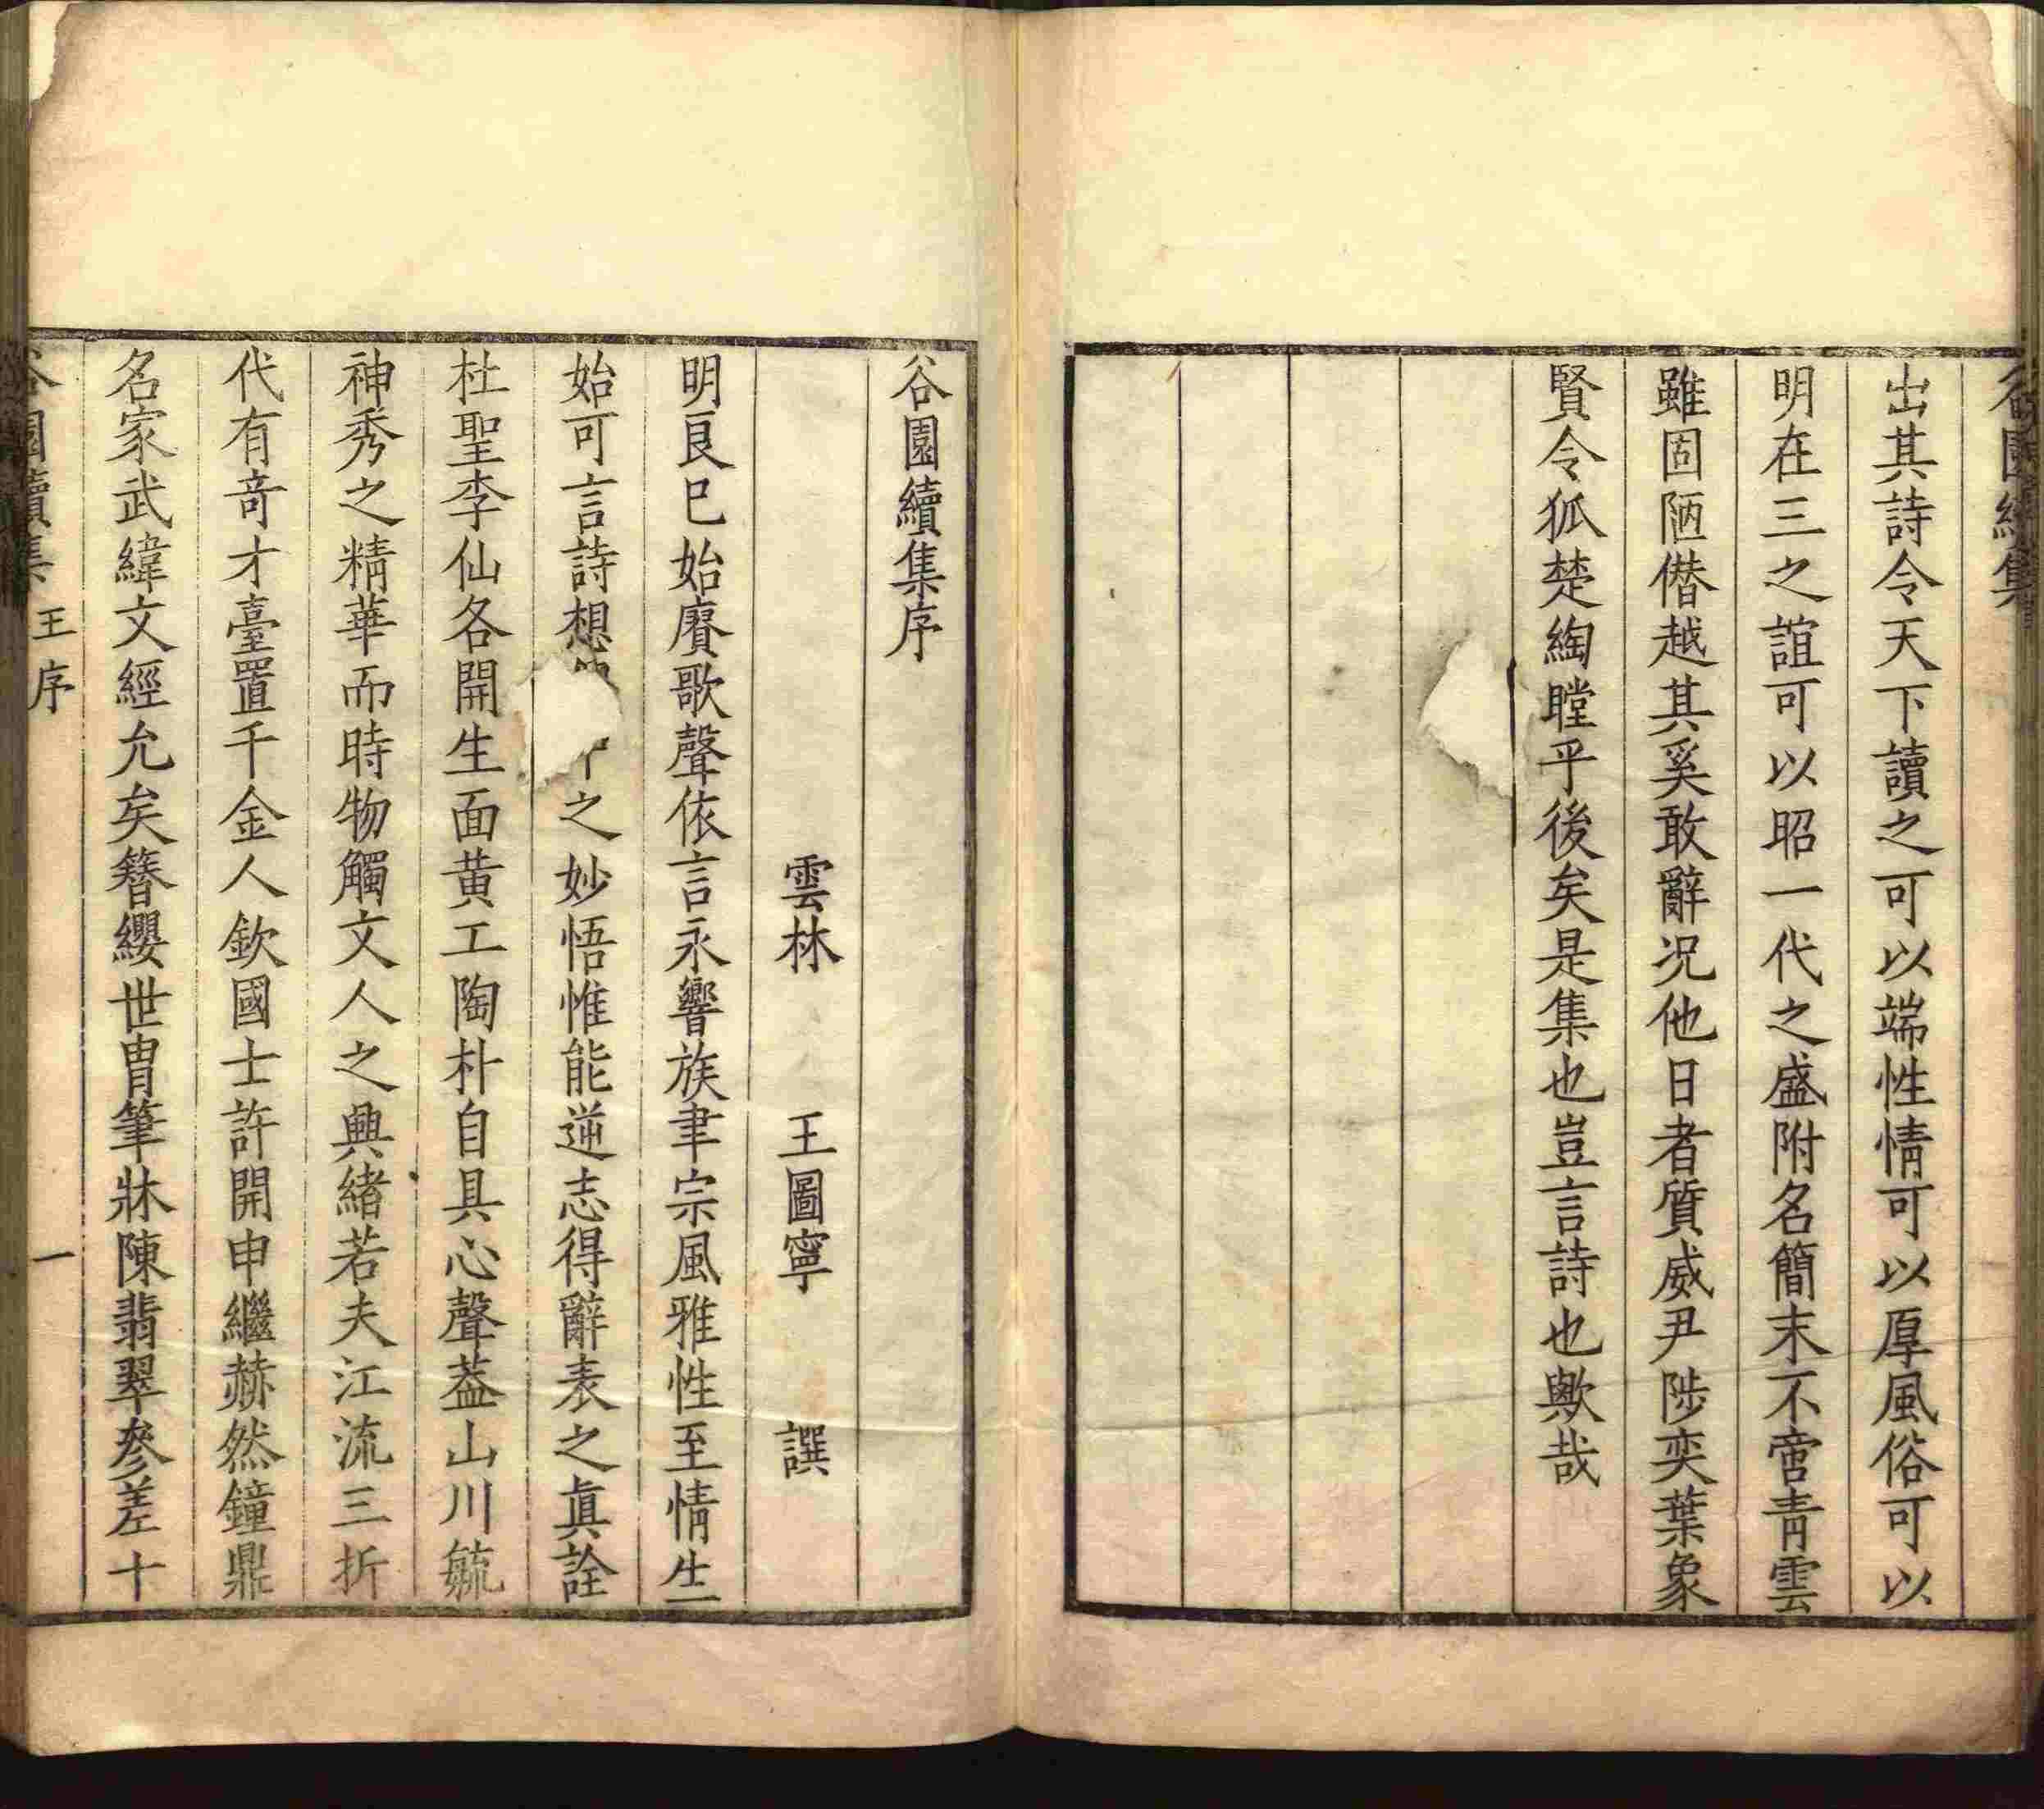 谷園續集
出其詩令天下讀之可以端性情可以厚風俗可以
明在三之誼可以昭一代之盛附名簡末不啻青雲
雖固陋僭越其奚敢辭况他日者質威尹陟奕葉象
賢令狐楚綯瞠乎後矣是集也豈言詩也歟哉
谷園續集序
雲林 王圖寧 譔
明良巳始賡歌聲依言永響族聿宗風雅性至情生
始可言詩想之妙悟惟能逆志得辭表之眞詮
杜聖李仙各開生面黄工陶朴自具心聲葢山川毓
神秀之精華而時物觸文人之興緒若夫江流三折
代有竒才臺置千金人欽國士許開申繼赫然鐘鼎
名家武緯文經允矣簪纓世胄筆牀陳翡翠參差十
谷園續集 王序 一